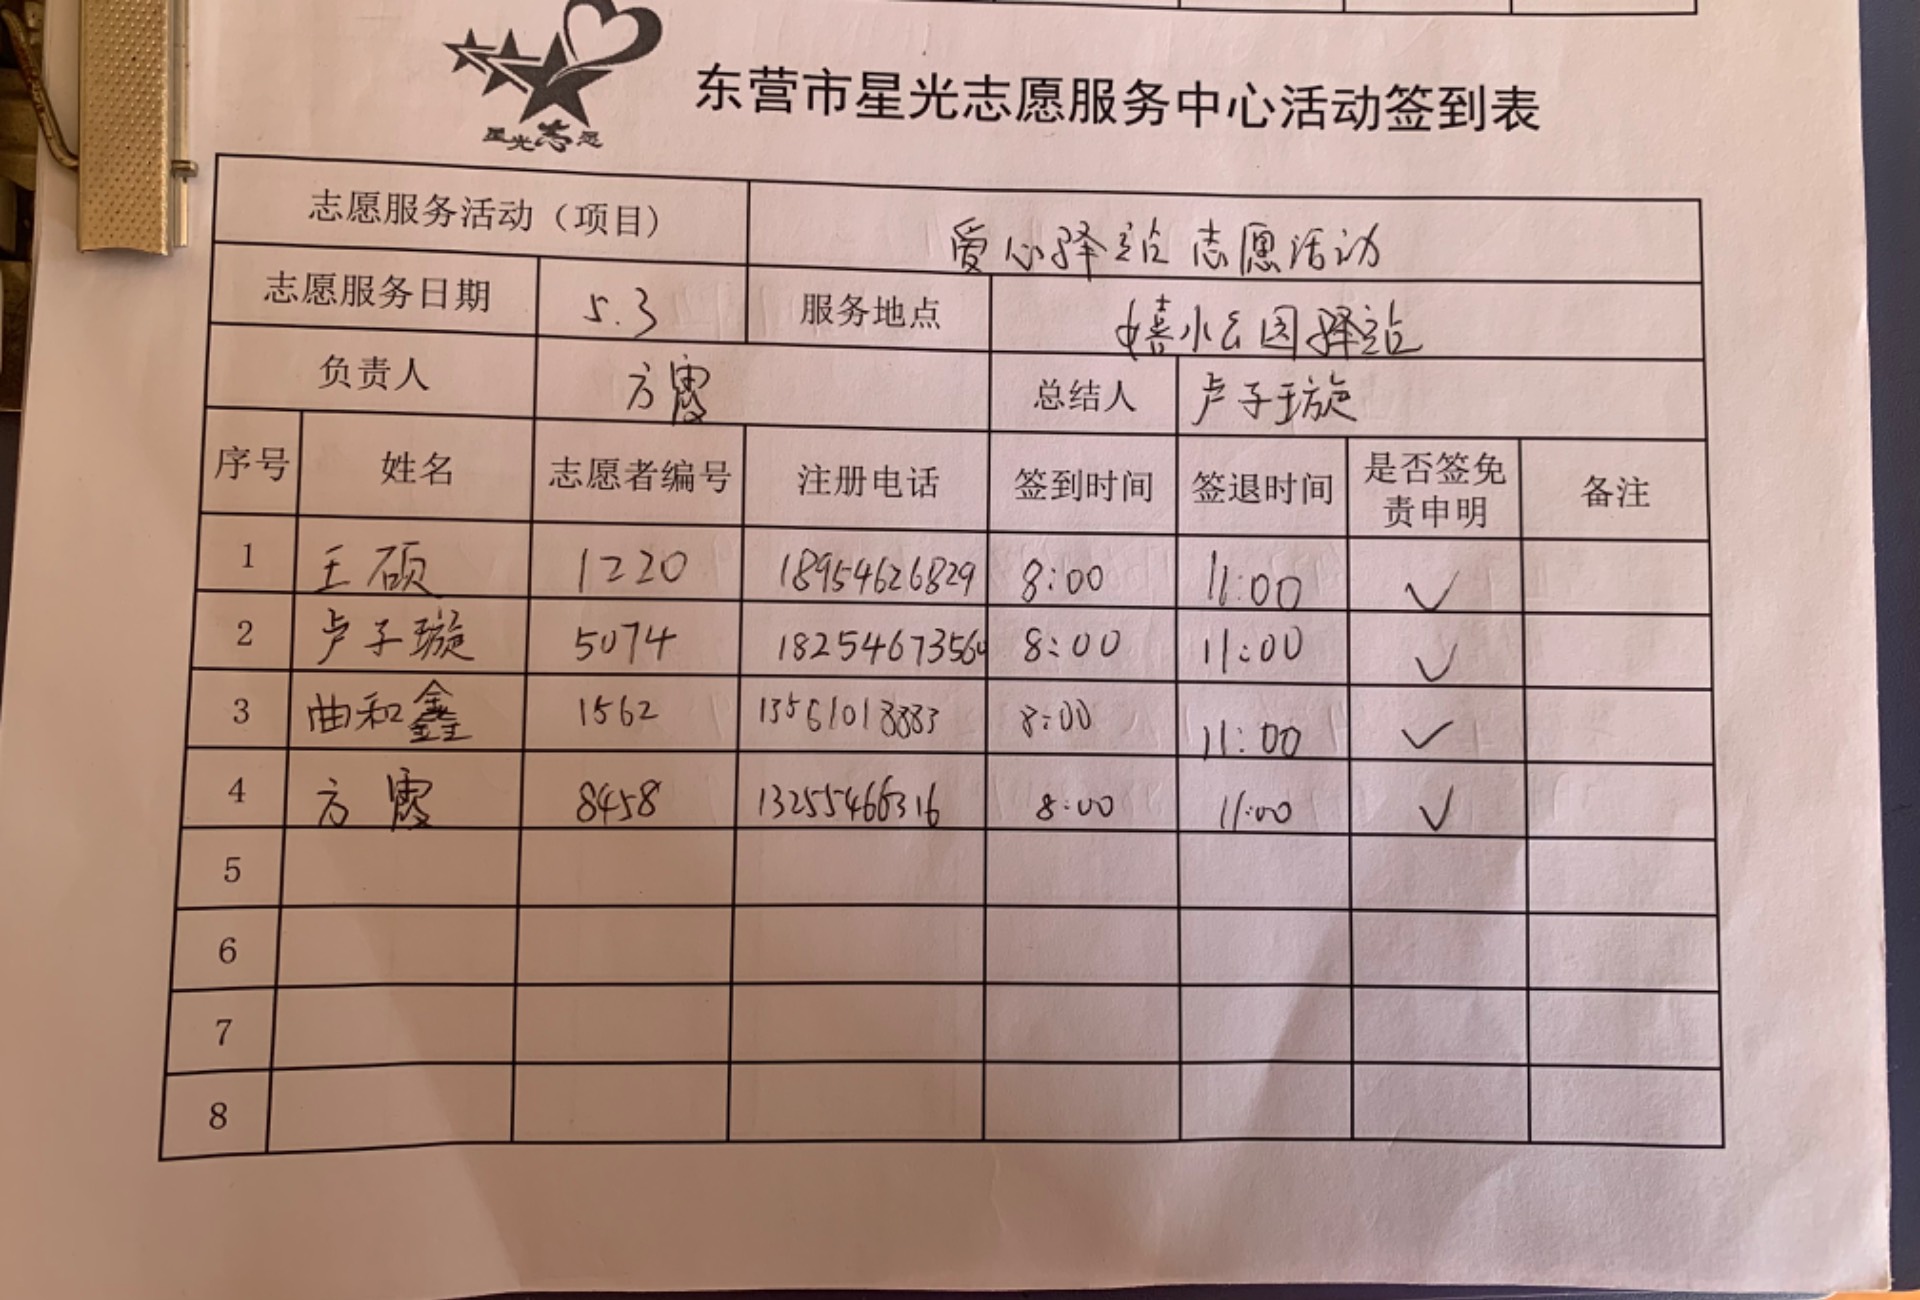 星光志愿
东营市星光志愿服务中心活动签到表
志愿服务活动（项目） 爱心驿站志愿活动
志愿服务日期 5.3 服务地点 嬉水公园驿站
负责人 方霞 总结人 卢子璇
序号 姓名 志愿者编号 注册电话 签到时间 签退时间 是否签免责申明 备注
1 王硕 1220 18954626829 8:00 11:00 ✓
2 卢子璇 5074 18254673560 8:00 11:00 ✓
3 曲和鑫 1562 13561018883 8:00 11:00 ✓
4 方霞 8458 13255466316 8:00 11:00 ✓
5
6
7
8